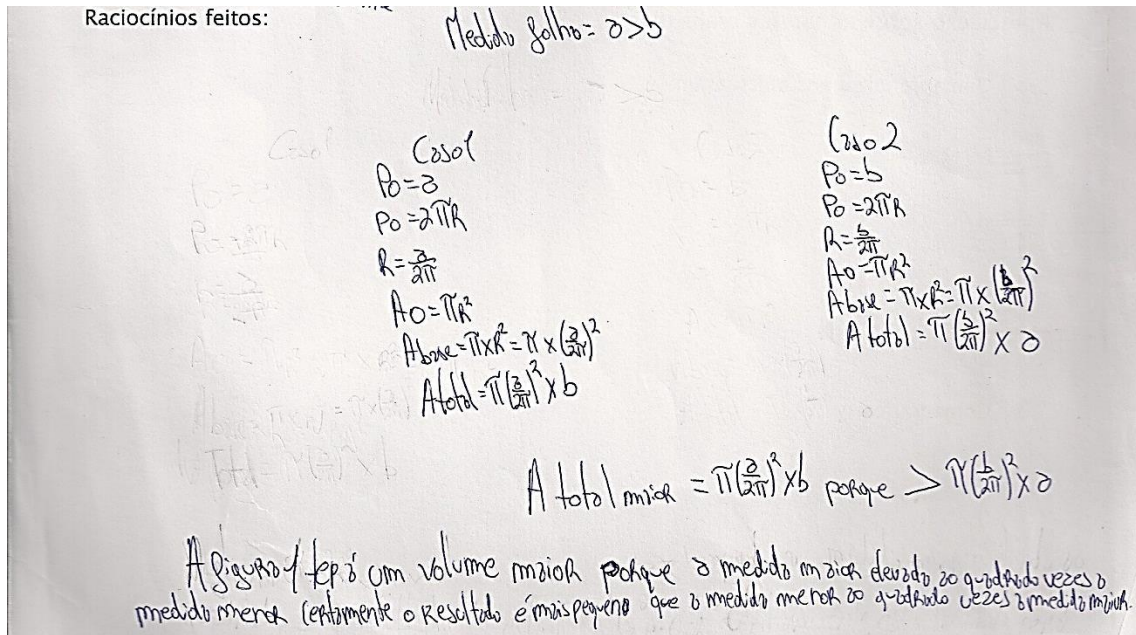 Raciocínios feitos:
Medida folha = a>b
Caso 1
P○=a
P○=2πR
R=a/2π
A○=πR²
Abase=π×R²=π×(a/2π)²
Atotal=π(a/2π)²×b
Caso 2
P○=b
P○=2πR
R=b/2π
A○=πR²
Abase=π×R²=π×(b/2π)²
Atotal=π(b/2π)²×a
A total maior = π(a/2π)²×b porque > π(b/2π)²×a
A figura 1 terá um volume maior porque a medida maior elevado ao quadrado vezes a
medida menor certamente o resultado é mais pequeno que a medida menor ao quadrado vezes a medida maior.